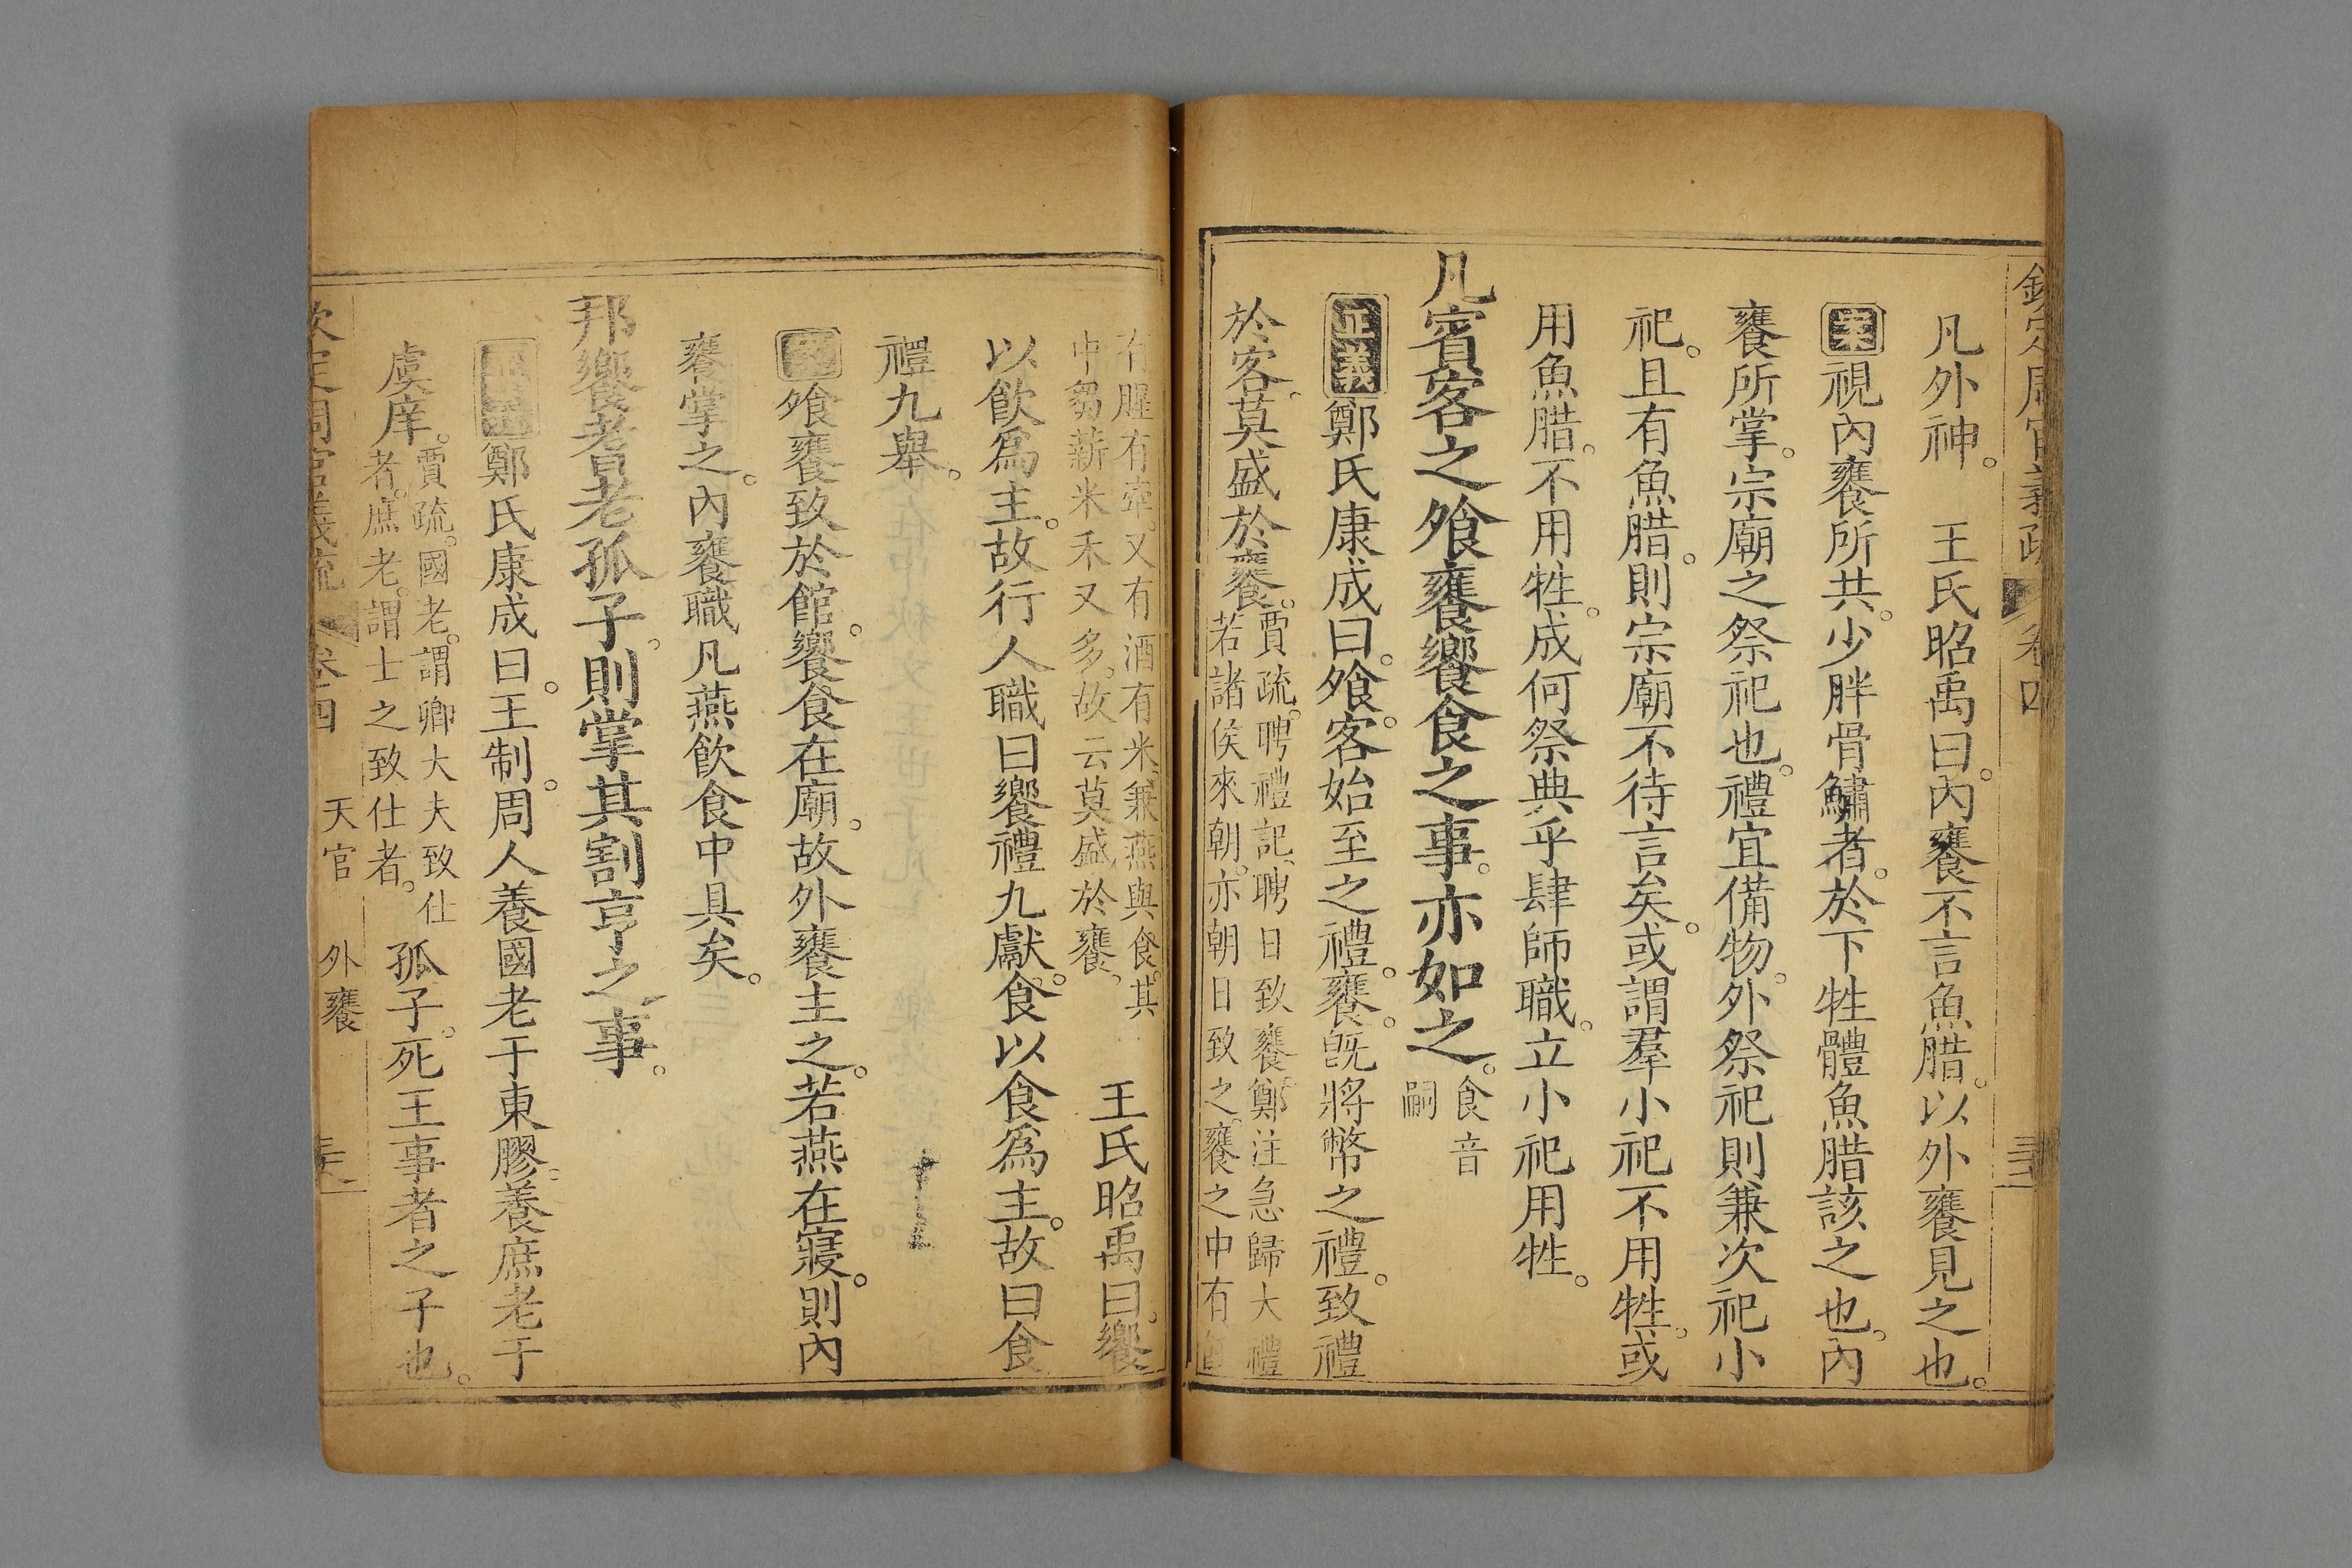 欽定周官義疏 卷四
凡外神。 王氏昭禹曰。內饔不言魚腊。以外饔見之也。
案視內饔所共。少胖骨鱐者。於下牲體魚腊該之也。內
饔所掌。宗廟之祭祀也。禮宜備物。外祭祀則兼次祀小
祀。且有魚腊。則宗廟不待言矣。或謂羣小祀不用牲。或
用魚腊。不用牲。成何祭典乎肆師職。立小祀用牲。
凡賓客之飧饔饗食之事。亦如之。
食音
嗣
正義鄭氏康成曰。飧。客始至之禮。饔。旣將幣之禮。致禮
於客。莫盛於饔。
賈疏。聘禮記、聘日致饔。鄭注急歸大禮
若諸侯來朝。亦朝日致之。饔之中有
有腥有牽。又有酒有米。兼燕與食。其
中芻薪米禾又多。故云莫盛於饔。
王氏昭禹曰。饗
以飮爲主。故行人職曰饗禮九獻。食以食爲主。故曰食
禮九舉。
飧饔致於館。饗食在廟。故外饔主之。若燕在寢。則內
饔掌之。內饔職凡燕飮食中具矣。
邦饗耆老孤子。則掌其割亨之事。
正義鄭氏康成曰。王制。周人養國老于東膠。養庶老于
虞庠。
賈疏。國老。謂卿大夫致仕
者。庶老。謂士之致仕者。
孤子。死王事者之子也。
欽定周官義疏 卷四 天官 外饔